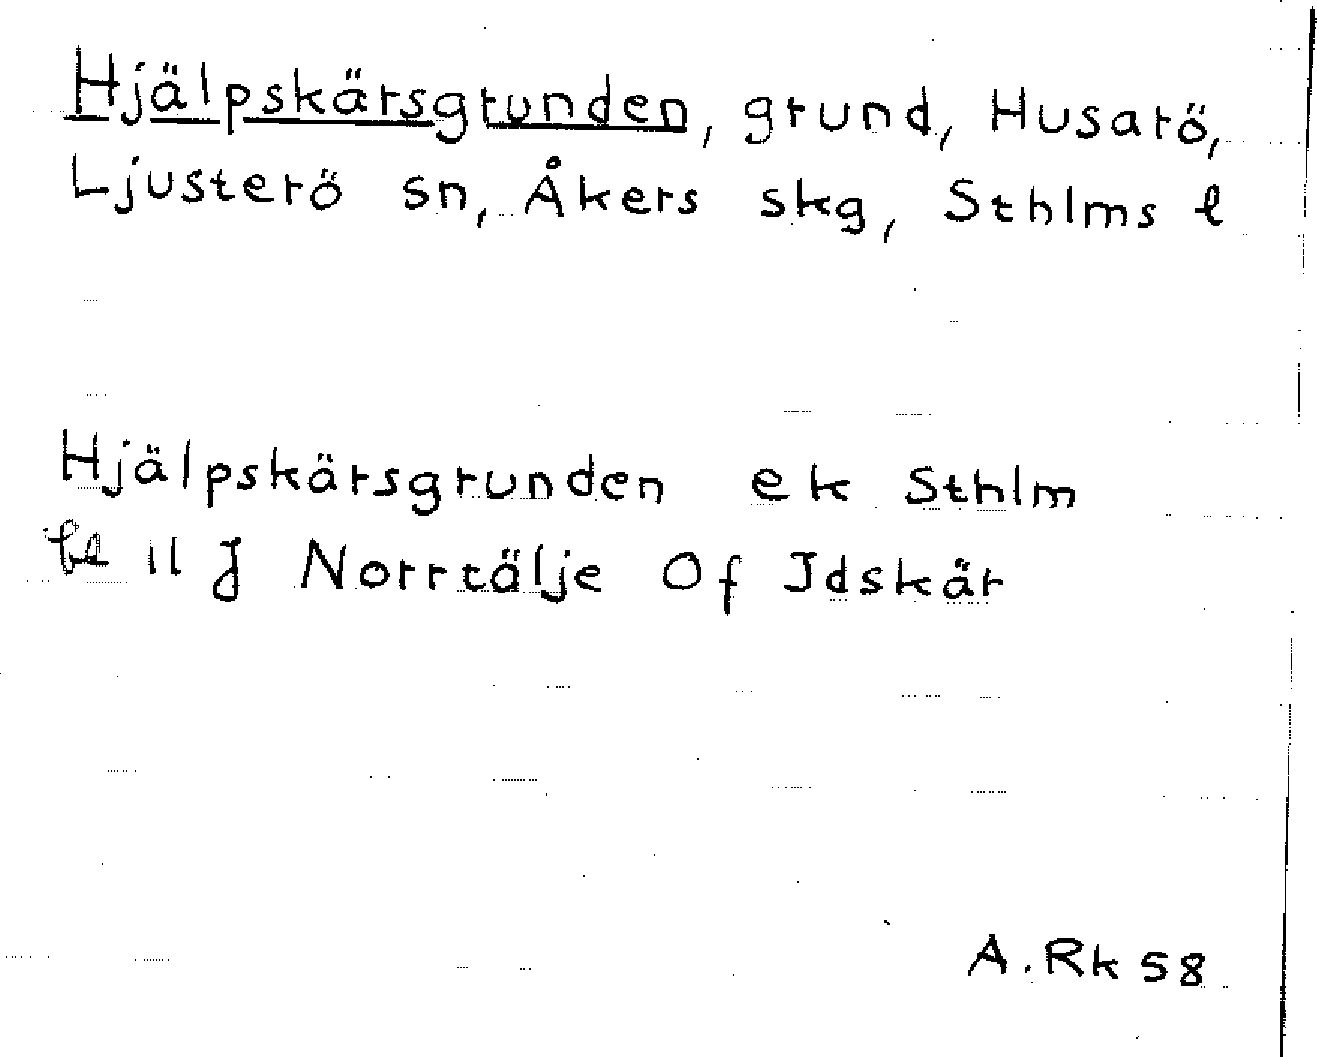 Hjälpskärsgrunden, grund, Husarö,
Ljusterö sn, Åkers skg, Sthlms l
Hjälpskärsgrunden ek Sthlm
bl 11 J Norrtälje Of Idskär
A. Rk 58